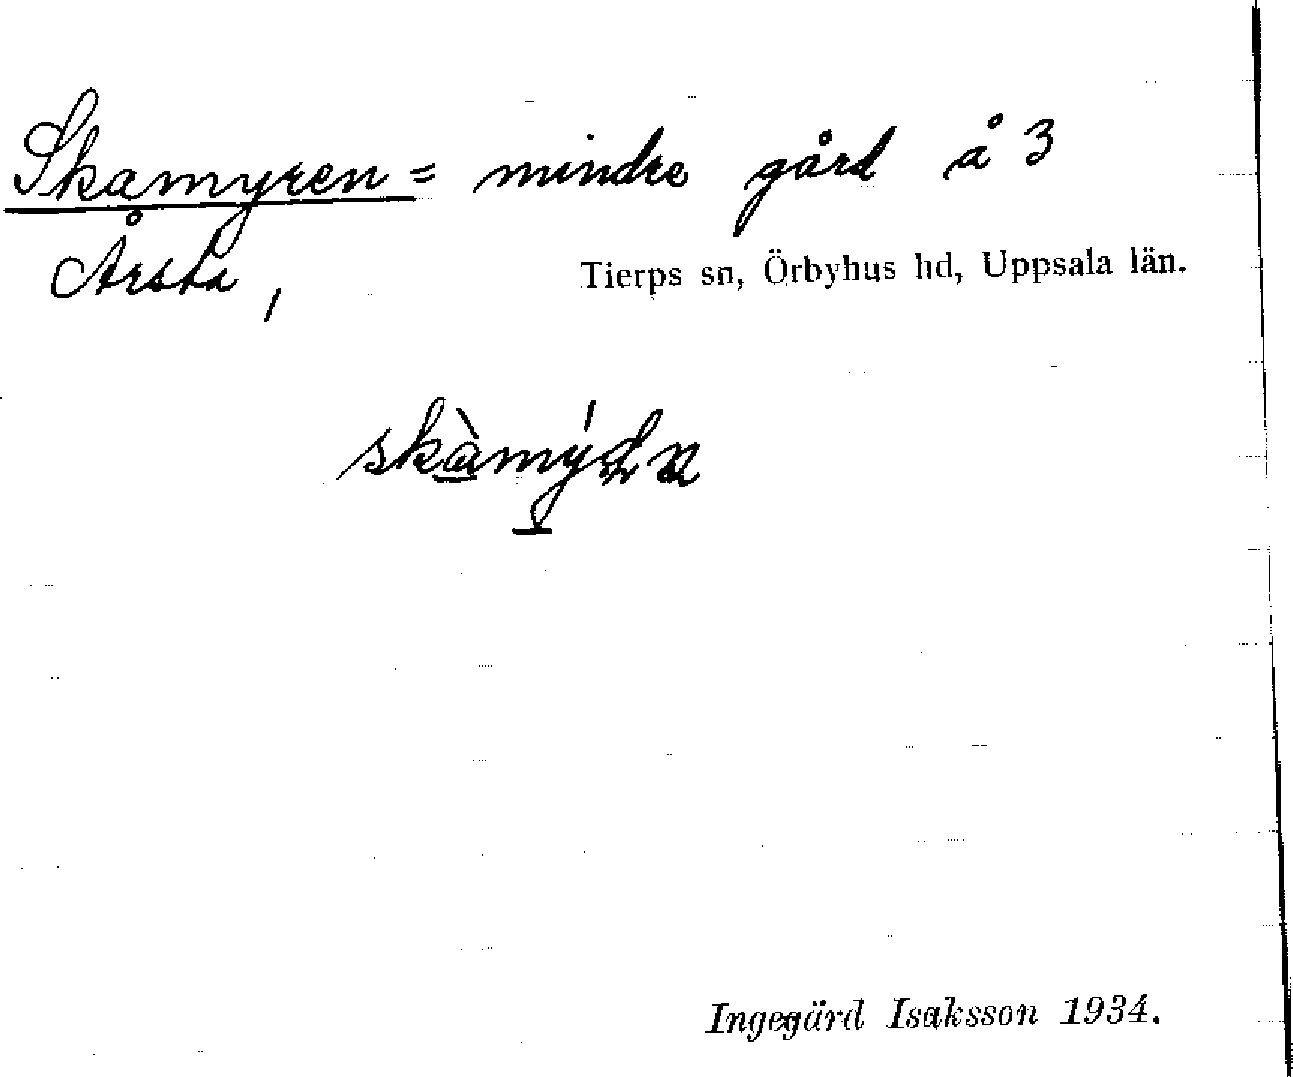 Skamyren = mindre gård å 3
Årsta,
Tierps sn, Örbyhus hd, Uppsala län.
Ingegärd Isaksson 1934.